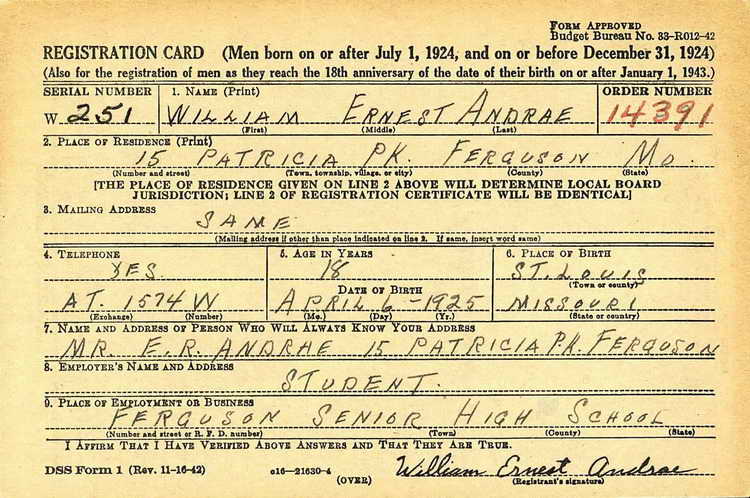 FORM APPROVED
Budget Bureau No. 33-R012-42
REGISTRATION CARD (Men born on or after July 1, 1924, and on or before December 31, 1924)
(Also for the registration of men as they reach the 18th anniversary of the date of their birth on or after January 1, 1943.)
SERIAL NUMBER 1. NAME (Print) ORDER NUMBER
W 251 WILLIAM ERNEST ANDRAE 14391
(First) (Middle) (Last)
2. PLACE OF RESIDENCE (Print)
15 PATRICIA PK. FERGUSON MO.
(Number and street) (Town, township, village, or city) (County) (State)
[THE PLACE OF RESIDENCE GIVEN ON LINE 2 ABOVE WILL DETERMINE LOCAL BOARD
JURISDICTION; LINE 2 OF REGISTRATION CERTIFICATE WILL BE IDENTICAL]
3. MAILING ADDRESS
SAME
(Mailing address if other than place indicated on line 2. If same, insert word same)
4. TELEPHONE 5. AGE IN YEARS 6. PLACE OF BIRTH
YES 18 ST. LOUIS
(Town or county)
DATE OF BIRTH
AT. 1574 W APRIL 6 - 1925 MISSOURI
(Exchange) (Number) (Mo.) (Day) (Yr.) (State or country)
7. NAME AND ADDRESS OF PERSON WHO WILL ALWAYS KNOW YOUR ADDRESS
MR. E. R. ANDRAE 15 PATRICIA PK. FERGUSON
8. EMPLOYER'S NAME AND ADDRESS
STUDENT.
9. PLACE OF EMPLOYMENT OR BUSINESS
FERGUSON SENIOR HIGH SCHOOL
(Number and street or R. F. D. number) (Town) (County) (State)
I AFFIRM THAT I HAVE VERIFIED ABOVE ANSWERS AND THAT THEY ARE TRUE.
DSS Form 1 (Rev. 11-16-42) c16-21630-4 William Ernest Andrae
(OVER) (Registrant's signature)